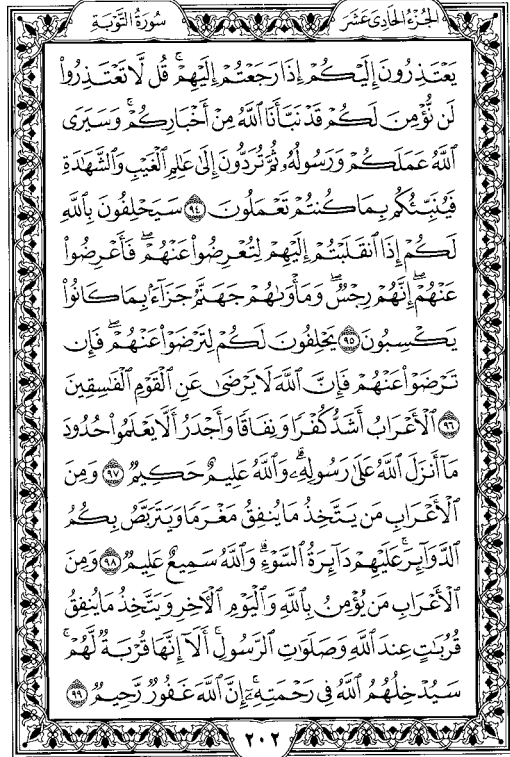 الجزء الحادى عشر
سورة التوبة
يَعْتَذِرُونَ إِلَيْكُمْ إِذَا رَجَعْتُمْ إِلَيْهِمْ ۚ قُل لَّا تَعْتَذِرُوا۟
لَن نُّؤْمِنَ لَكُمْ قَدْ نَبَّأَنَا ٱللَّهُ مِنْ أَخْبَارِكُمْ ۚ وَسَيَرَى
ٱللَّهُ عَمَلَكُمْ وَرَسُولُهُۥ ثُمَّ تُرَدُّونَ إِلَىٰ عَـٰلِمِ ٱلْغَيْبِ وَٱلشَّهَـٰدَةِ
فَيُنَبِّئُكُم بِمَا كُنتُمْ تَعْمَلُونَ ٩٤ سَيَحْلِفُونَ بِٱللَّهِ
لَكُمْ إِذَا ٱنقَلَبْتُمْ إِلَيْهِمْ لِتُعْرِضُوا۟ عَنْهُمْ ۖ فَأَعْرِضُوا۟
عَنْهُمْ ۖ إِنَّهُمْ رِجْسٌ ۖ وَمَأْوَىٰهُمْ جَهَنَّمُ جَزَآءًۢ بِمَا كَانُوا۟
يَكْسِبُونَ ٩٥ يَحْلِفُونَ لَكُمْ لِتَرْضَوْا۟ عَنْهُمْ ۖ فَإِن
تَرْضَوْا۟ عَنْهُمْ فَإِنَّ ٱللَّهَ لَا يَرْضَىٰ عَنِ ٱلْقَوْمِ ٱلْفَـٰسِقِينَ
٩٦ ٱلْأَعْرَابُ أَشَدُّ كُفْرًا وَنِفَاقًا وَأَجْدَرُ أَلَّا يَعْلَمُوا۟ حُدُودَ
مَآ أَنزَلَ ٱللَّهُ عَلَىٰ رَسُولِهِۦ ۗ وَٱللَّهُ عَلِيمٌ حَكِيمٌ ٩٧ وَمِنَ
ٱلْأَعْرَابِ مَن يَتَّخِذُ مَا يُنفِقُ مَغْرَمًا وَيَتَرَبَّصُ بِكُمُ
ٱلدَّوَآئِرَ ۚ عَلَيْهِمْ دَآئِرَةُ ٱلسَّوْءِ ۗ وَٱللَّهُ سَمِيعٌ عَلِيمٌ ٩٨ وَمِنَ
ٱلْأَعْرَابِ مَن يُؤْمِنُ بِٱللَّهِ وَٱلْيَوْمِ ٱلْـَٔاخِرِ وَيَتَّخِذُ مَا يُنفِقُ
قُرُبَـٰتٍ عِندَ ٱللَّهِ وَصَلَوَٰتِ ٱلرَّسُولِ ۚ أَلَآ إِنَّهَا قُرْبَةٌ لَّهُمْ ۚ
سَيُدْخِلُهُمُ ٱللَّهُ فِى رَحْمَتِهِۦٓ ۗ إِنَّ ٱللَّهَ غَفُورٌ رَّحِيمٌ ٩٩
٢٠٢